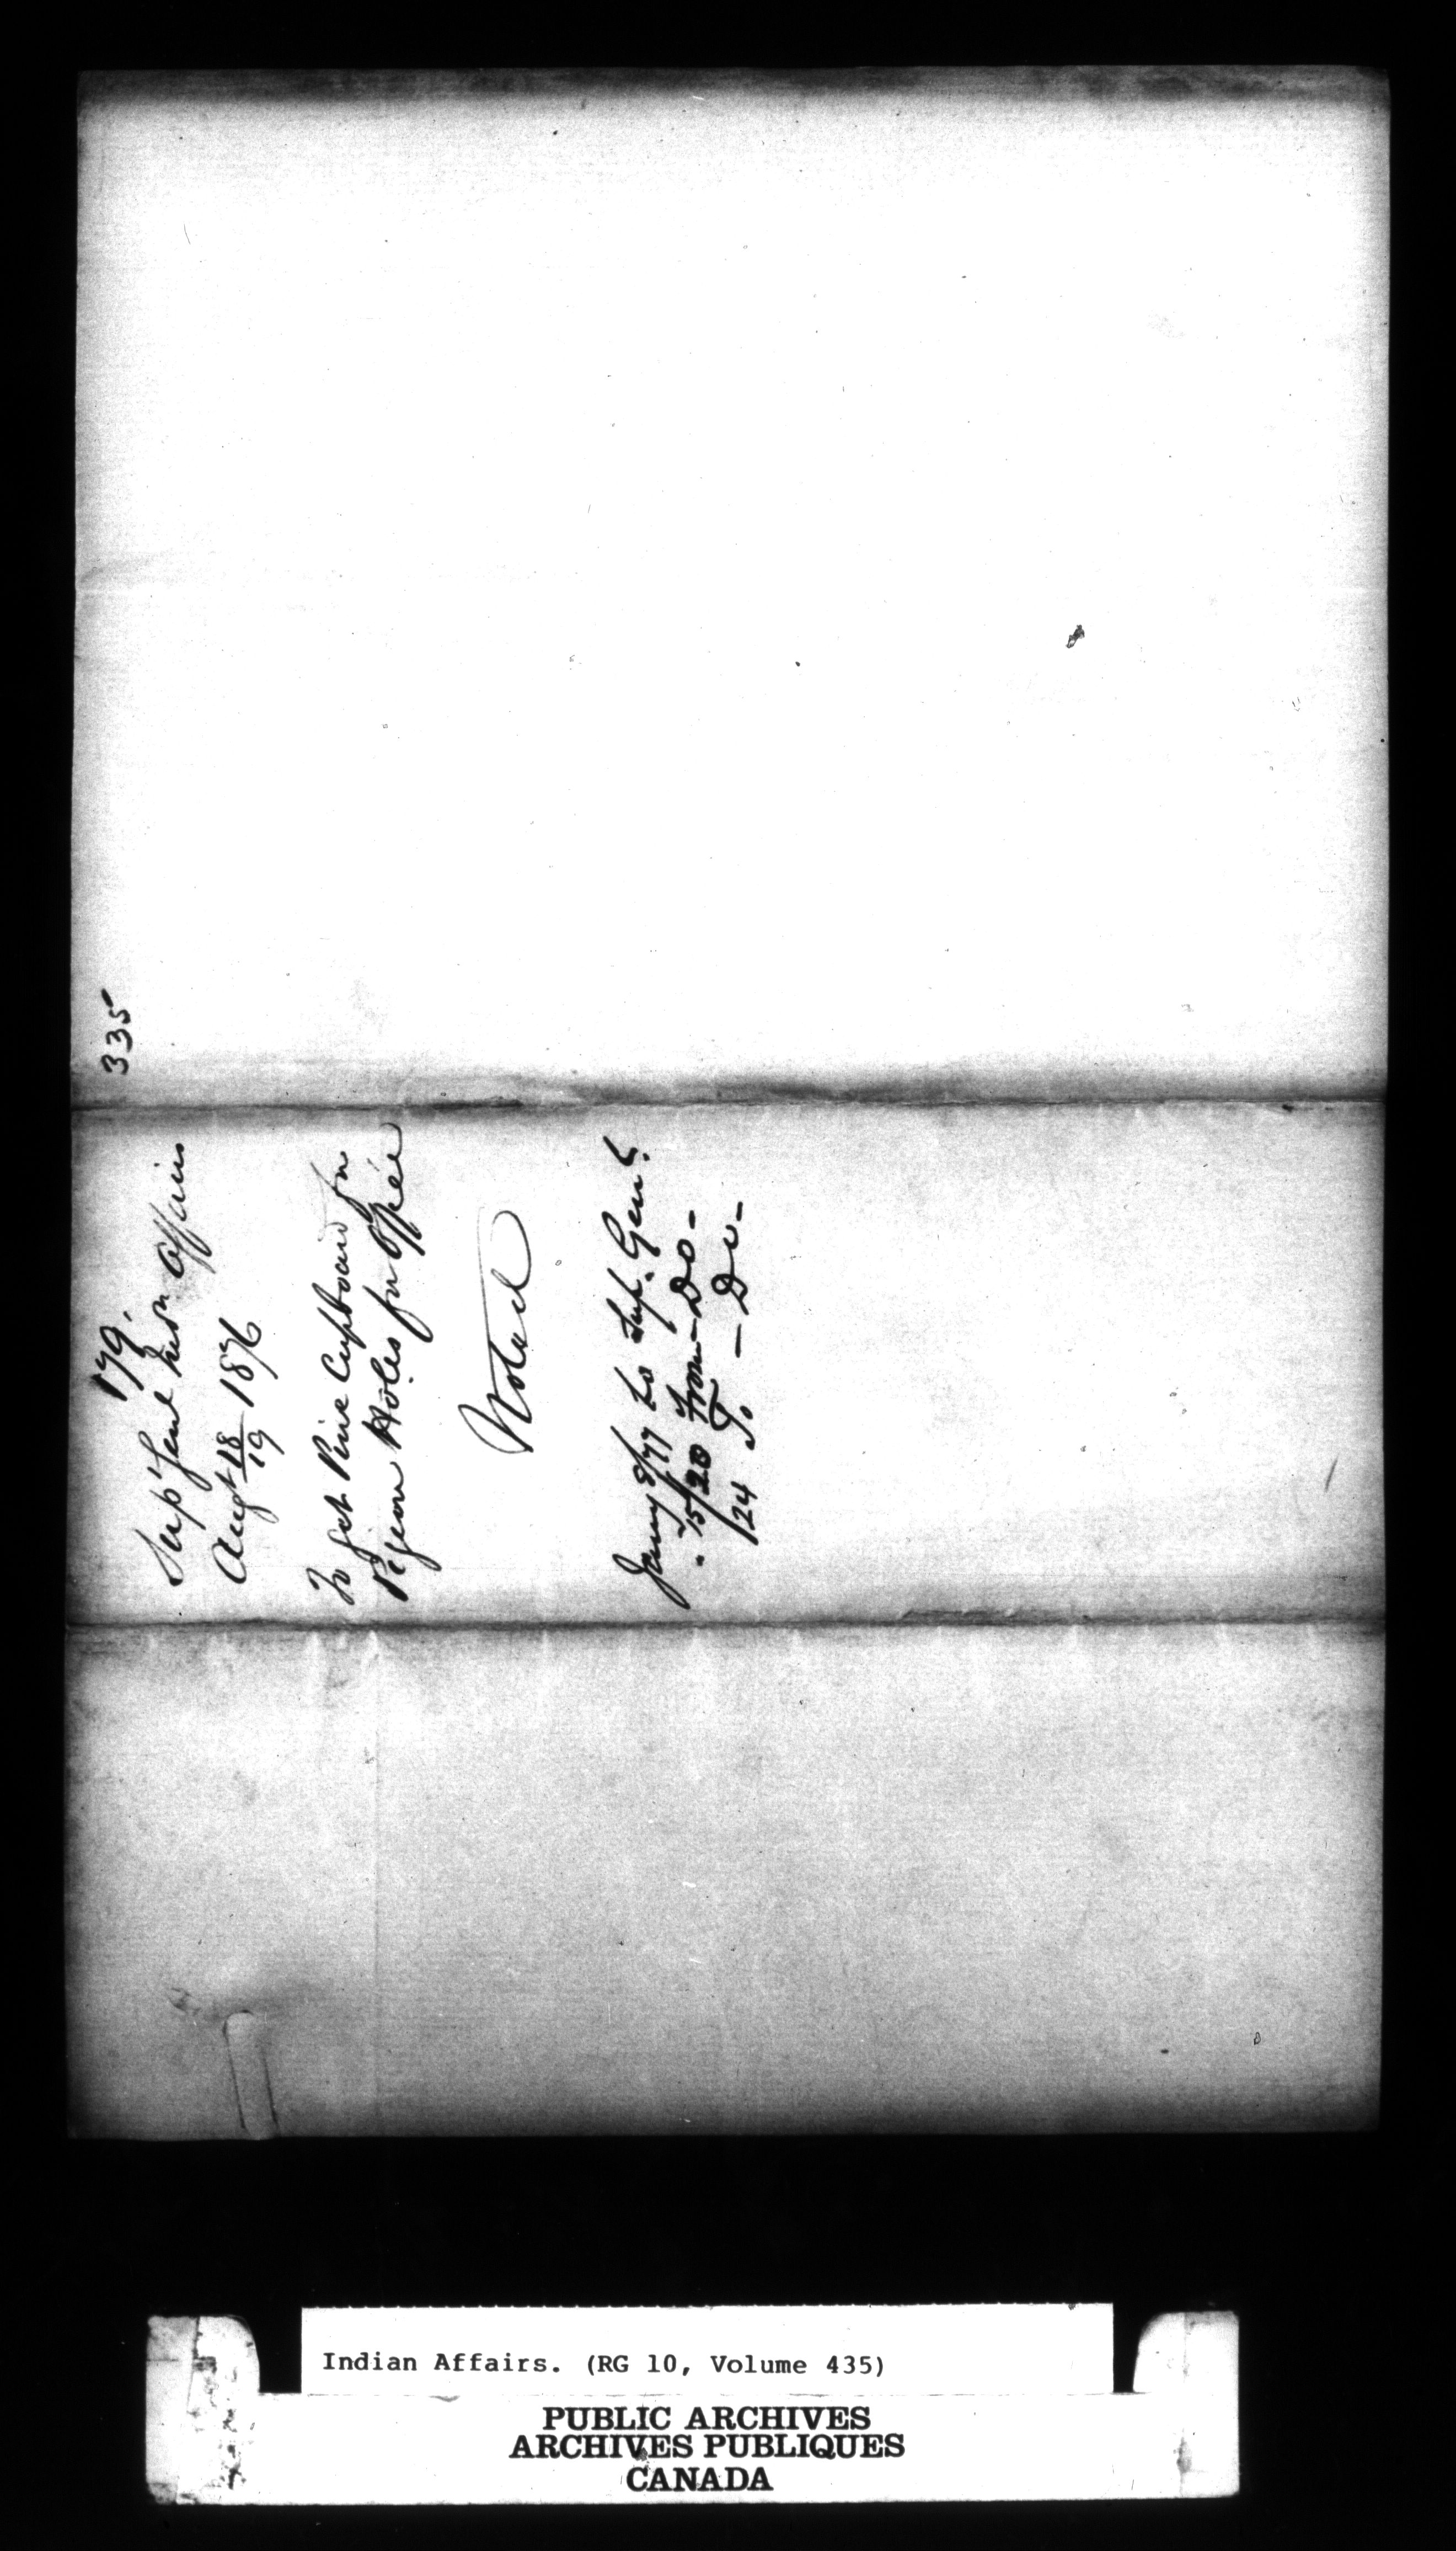 335
179.
Sup' Genl Indn Affairs
Augt 18/19 1876
To get Pine Cupboard for
Pigeon Holes for Office
Noted
Jany 8/77 to Supt. Genl.
" 15/20 From - Do -
/24 To - Do -
Indian Affairs. (RG 10, Volume 435)
PUBLIC ARCHIVES
ARCHIVES PUBLIQUES
CANADA